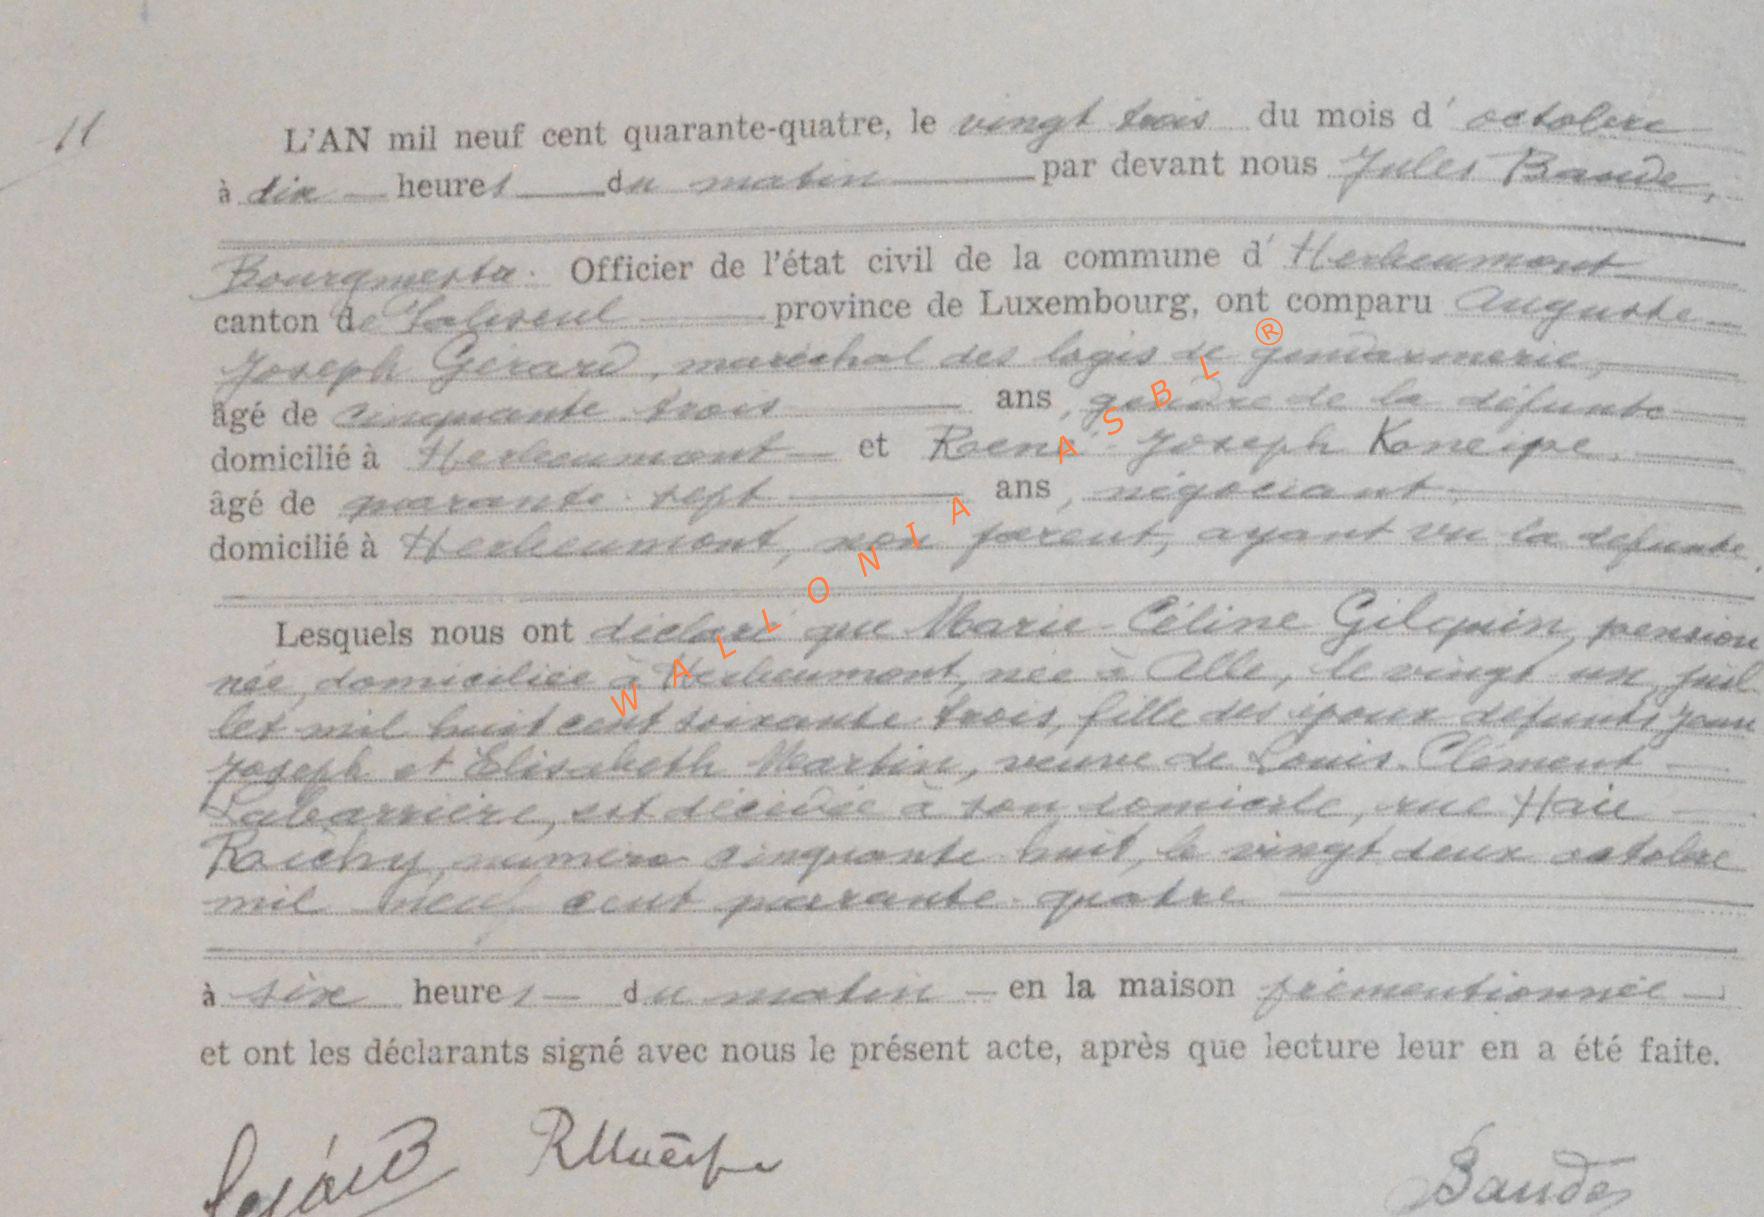 11
L'AN mil neuf cent quarante-quatre, le vingt trois du mois d' octobre
à dix heures du matin par devant nous Jules Baude,
Bourgmestre. Officier de l'état civil de la commune d' Herbeumont
canton de Paliseul province de Luxembourg, ont comparu Auguste
Joseph Gérard, maréchal des logis de gendarmerie,
âgé de cinquante trois ans, gendre de la défunte
domicilié à Herbeumont et René Joseph Kneipe.
âgé de quarante-sept ans, négociant,
domicilié à Herbeumont, non parent, ayant vu la défunte.
Lesquels nous ont déclaré que Marie-Céline Gilquin, pension
née, domiciliée à Herbeumont, née à Alle, le vingt un juil
let mil huit cent soixante trois, fille des époux défunts Jean
Joseph et Elisabeth Martin, veuve de Louis-Clément
Labarrière, est décédée à son domicile, rue Haie
Roichy, numéro cinquante huit, le vingt deux octobre
mil neuf cent quarante-quatre
à six heures du matin en la maison prémentionnée
et ont les déclarants signé avec nous le présent acte, après que lecture leur en a été faite.
Gérard Baude
WALLONIA ASBL ®